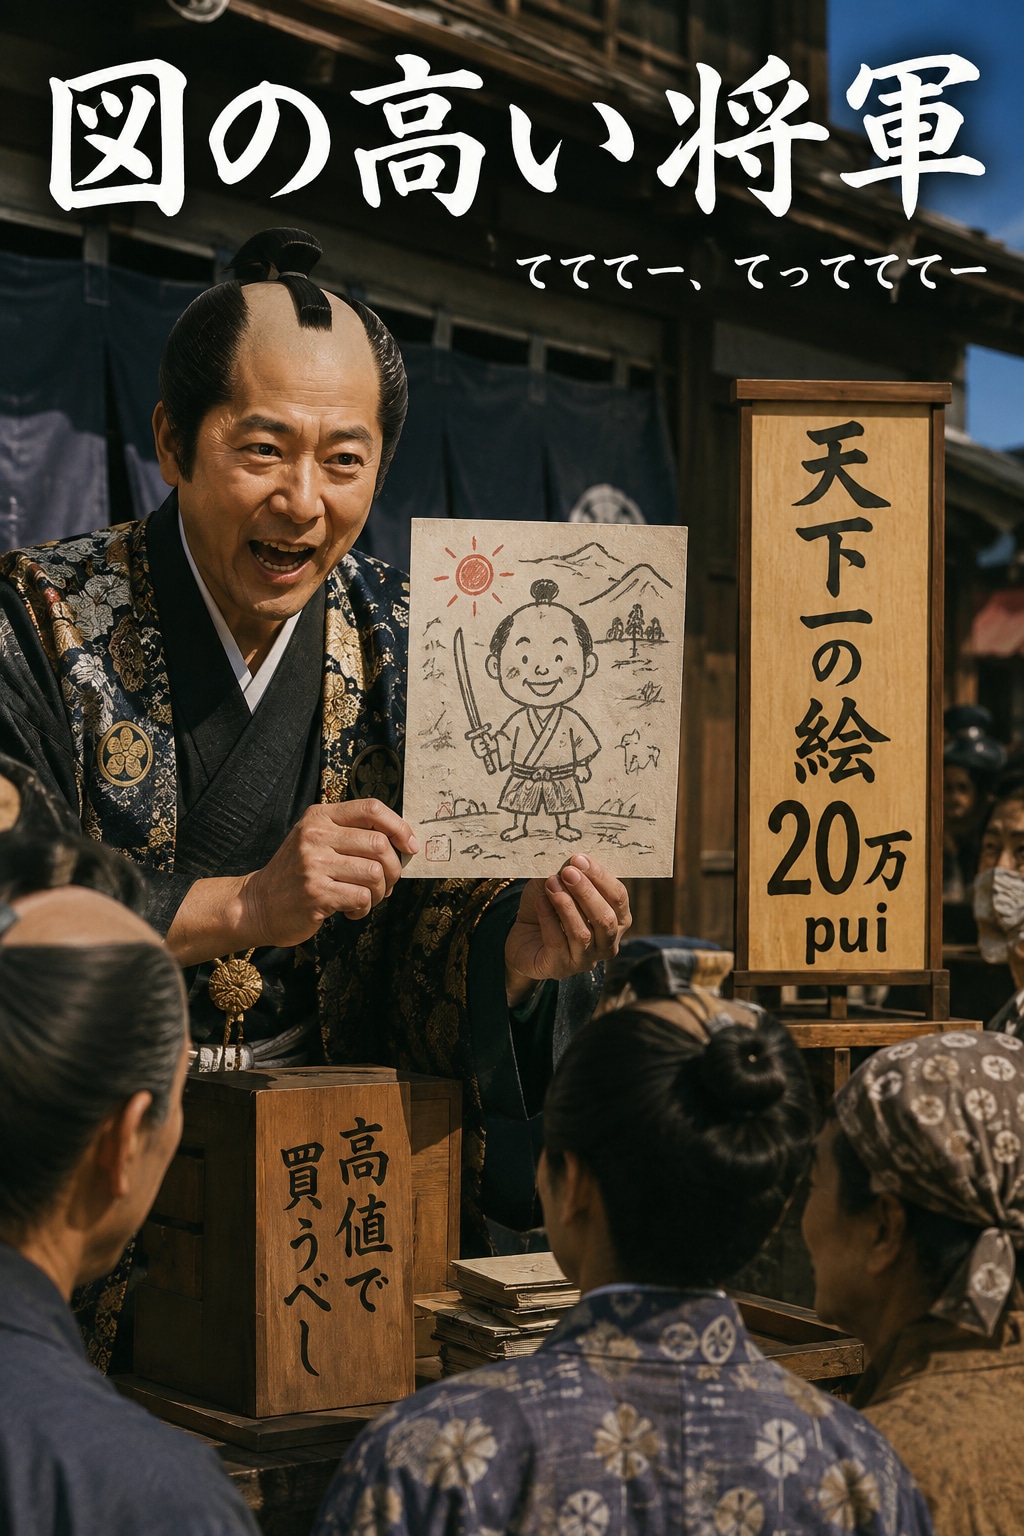 図の高い将軍
てててー、てってててー
天下一の絵
20万
pui
高値で
買うべし